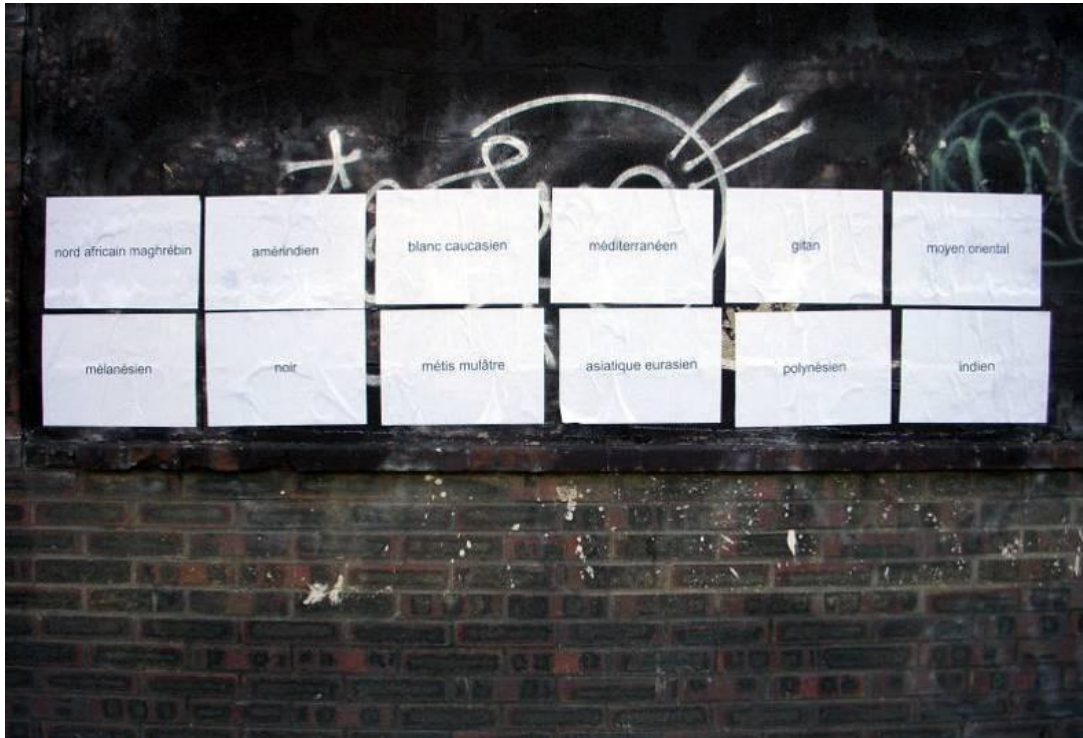 nord africain maghrébin
amérindien
blanc caucasien
méditerranéen
gitan
moyen oriental
mélanésien
noir
métis mulâtre
asiatique eurasien
polynésien
indien